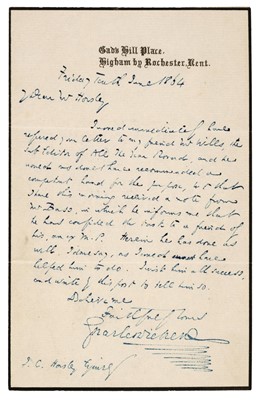 Gad's Hill Place.
Higham by Rochester, Kent.
Friday Tenth June 1864
My Dear Mr Horsley
I would immediately have
referred your letter to my friend Mr Wills, the
Sub Editor of All the Year Round, and he
would no doubt have recommended a
competent hand for the purpose, but that
I this morning received a note from
Mr Bass, in which he informs me that
he has confided the task to a friend of
his, an ex M.P. Herein he has done as
well, I dare say, as I could have
helped him to do. I wish him all success
and write by this post to tell him so.
Believe me
Faithfully Yours
Charles Dickens
J. C. Horsley Esquire